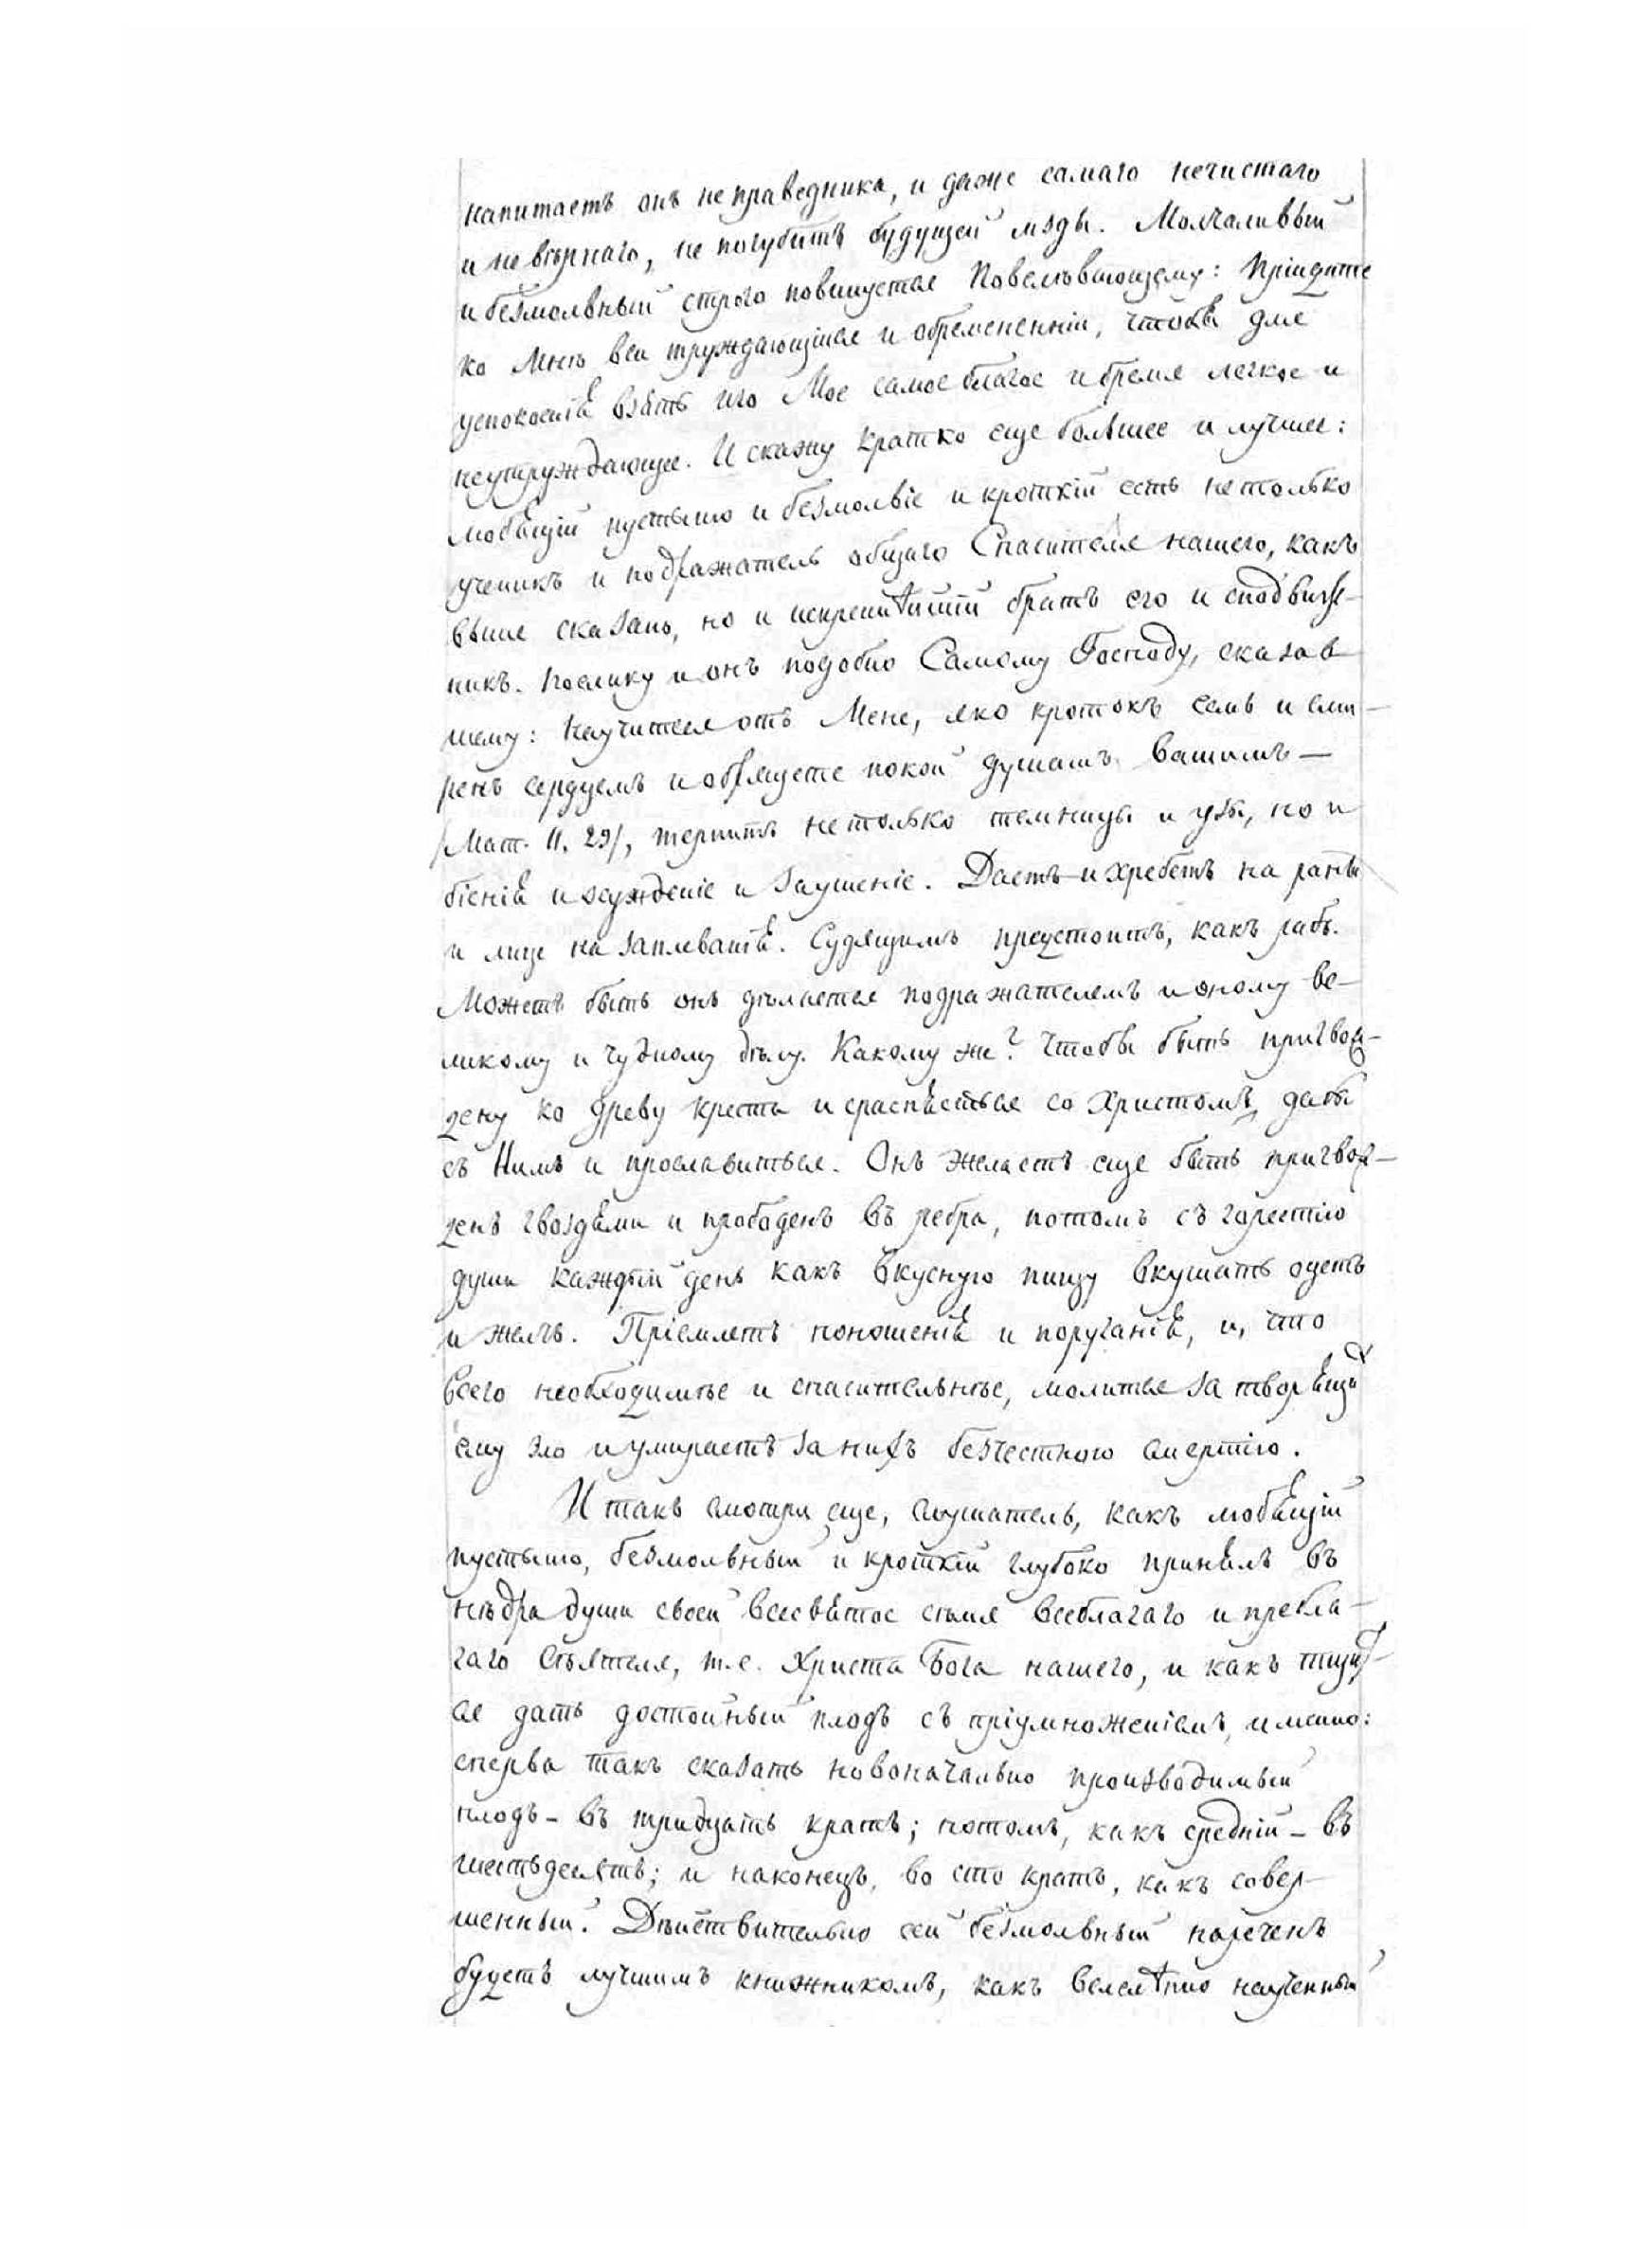 напитаетъ онъ неправедника, и даже самаго нечистаго
и невѣрнаго, не погубитъ будущей мзды. Молчаливый
и безмолвный строго повинуется Повелѣвающему: Пріидите
ко Мнѣ вси труждающіися и обремененніи, чтобы для
успокоенія взять иго Мое самое благое и бремя легкое и
неутруждающее. И скажу кратко еще большее и лучшее:
любящій пустыню и безмолвіе и кроткій есть нетолько
ученикъ и подражатель общаго Спасителя нашего, какъ
выше сказано, но и искреннѣйшій братъ его и сподвиж-
никъ. Поелику и онъ подобно Самому Господу, сказав-
шему: Научитеся отъ Мене, яко кротокъ есмь и сми-
ренъ сердцемъ и обрящете покой душамъ вашимъ —
/Мат. 11. 29/, терпитъ нетолько темницы и узы, но и
біенія и осужденіе и заушеніе. Даетъ и хребетъ на раны
и лице на заплеванія. Судящимъ предстоитъ, какъ рабъ.
Можетъ быть онъ дѣлается подражателемъ и оному ве-
ликому и чудному дѣлу. Какому же? Чтобы быть пригвож-
дену ко древу креста и сраспясться со Христомъ, дабы
съ Нимъ и прославиться. Онъ желаетъ еще быть пригвож-
денъ гвоздями и прободенъ въ ребра, потомъ съ горестію
души каждый день какъ вкусную пищу вкушать оцетъ
и желчь. Пріемлетъ поношенія и поруганія, и, что
всего необходимѣе и спасительнѣе, молится за творящихъ
ему зло и умираетъ за нихъ безчестною смертію.
И такъ смотри еще, слушатель, какъ любящій
пустыню, безмолвный и кроткій глубоко принялъ въ
нѣдра души своей всесвятое сѣмя всеблагаго и пребла-
гаго Сѣятеля, т.е. Христа Бога нашего, и какъ тщит-
ся дать достойный плодъ съ пріумноженіемъ, именно:
сперва такъ сказать новоначально производимый
плодъ - въ тридцать кратъ; потомъ, какъ средній - въ
шестьдесятъ; и наконецъ, во сто кратъ, какъ совер-
шенный. Дѣйствительно сей безмолвный нареченъ
будетъ лучшимъ книжникомъ, какъ велелѣпно наученный